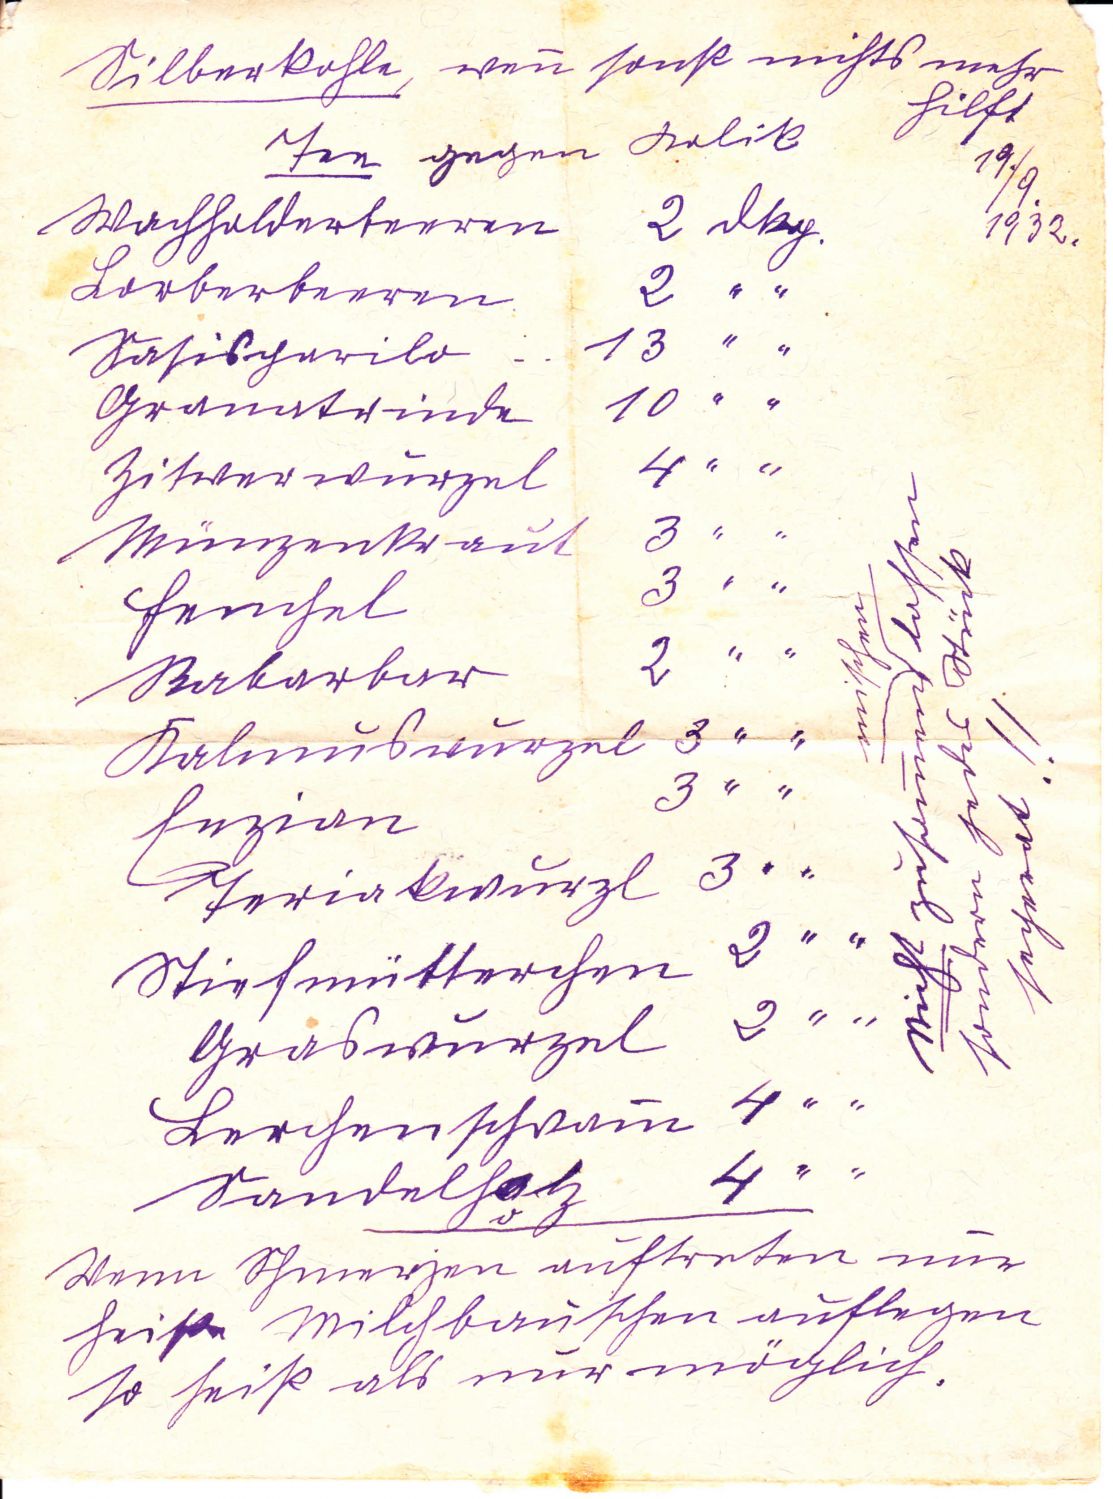 Silberkohle, weñ sonst nichts mehr
hilft
Tee gegen Kolik
19./9.
1932.
Wachholderbeeren 2 dkg.
Lorberbeeren 2 " "
Sasisparilo .. 13 " "
Granatrinde 10 " "
Zitwerwurzel 4 " "
Münzenkraut 3 " "
Fenchel 3 " "
Rabarbar 2 " "
Kalmuswurzel 3 " "
Enzian 3 " "
Teriakwurzl 3 " "
Stiefmütterchen 2 " "
Graswurzel 2 " "
Lerchenschwam̄ 4 " "
Sandelholz 4 " "
o
Wenn Schmerzen auftreten nur
heiße Milchbauschen auflegen
so heiß als nur möglich.
mischen
Nicht zusam̄en lassen
sondern jedes Stück
separat!!